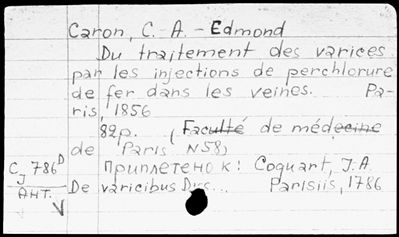 Caron, C.-A.-Edmond
Du traitement des varices
par les injections de perchlorure
de fer dans les veines. Pa-
ris, 1856
82p. (Faculté de médecine
de Paris N58)
Приплетено к: Coquart, J.A.
De varicibus Diss... Parisiis, 1786
CJ 786D
АНТ.